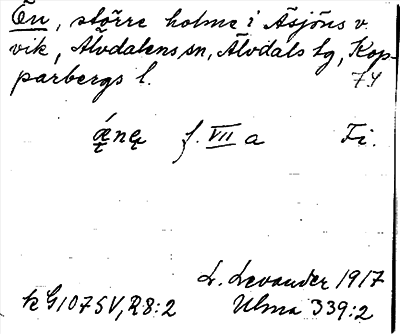 Ön, större holme i Åsjöns v.
vik, Älvdalens sn, Älvdals tg, Kop-
parbergs l. 74
f. VII a Fi.
L. Levander 1917
k G1075V, R8:2 Ulma 339:2